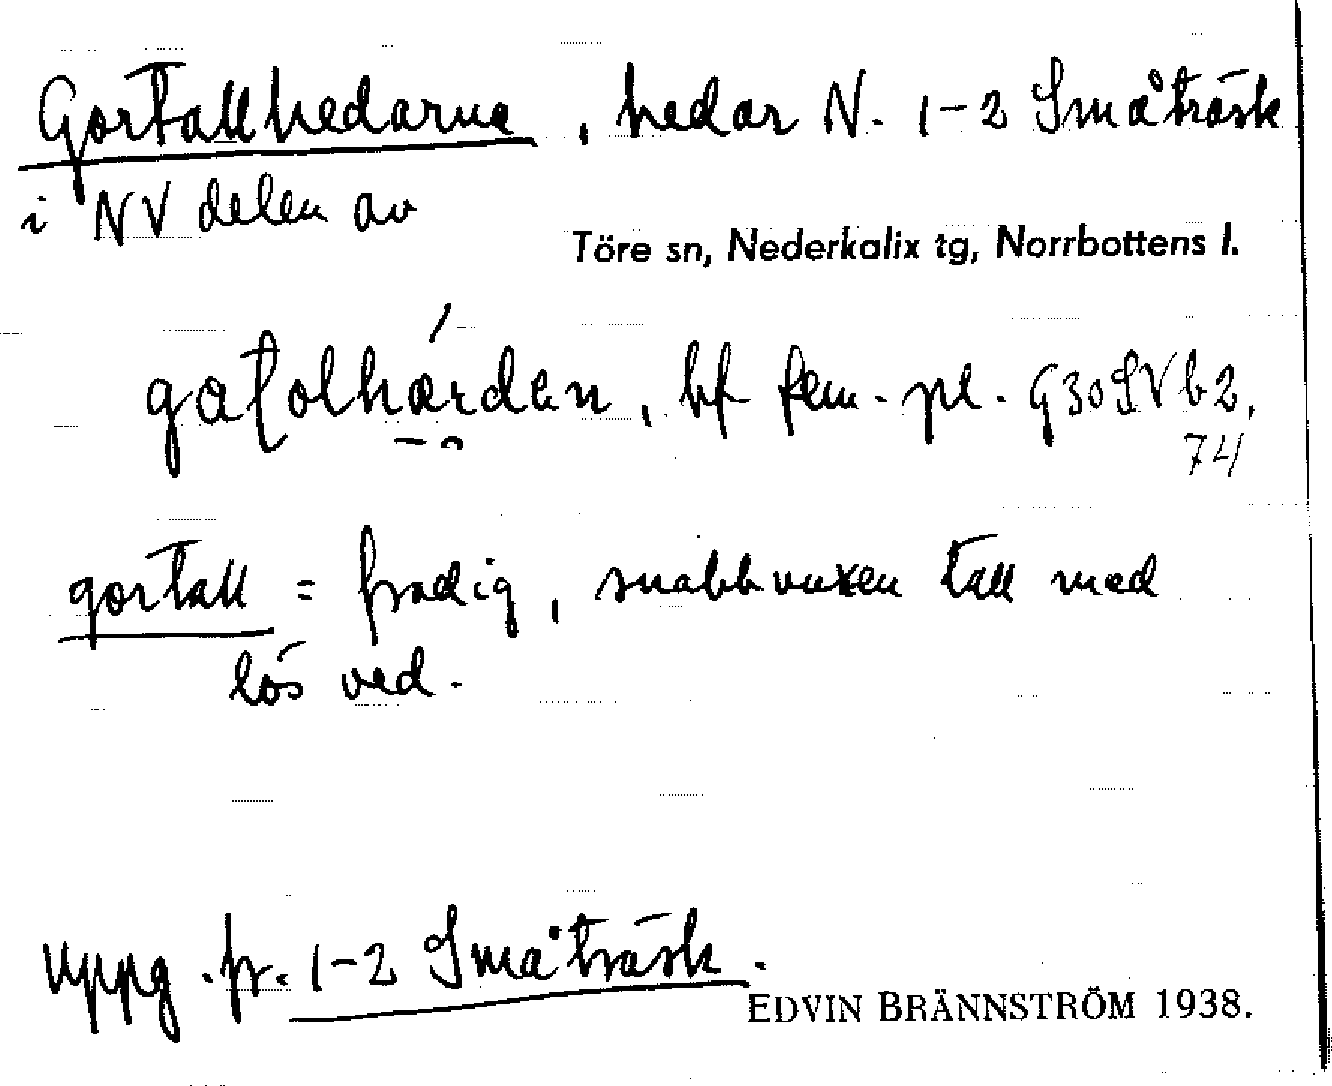 Gortallhedarna, hedar N. 1-2 Småträsk
i NV delen av
Töre sn, Nederkalix tg, Norrbottens l.
bf fem. pl. G30SVb2,
74
gortall = frodig, snabbvuxen tall med
lös ved.
Uppg. fr. 1-2 Småträsk.
EDVIN BRÄNNSTRÖM 1938.